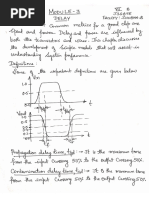 MODULE-3
DELAY
Common metrics for a good chip are
Speed and power. Delay and power are influenced by
both the transistors and wires. This chapter discusses
the development of simple models that will assist in
understanding system performance.
Definitions
Some of the important definitions are given below
Propagation delay time, tpd → It is the maximum time
from the input crossing 50% to the output crossing 50%.
Contamination delay time, tcd → It is the minimum time
from the input crossing 50% to the output crossing